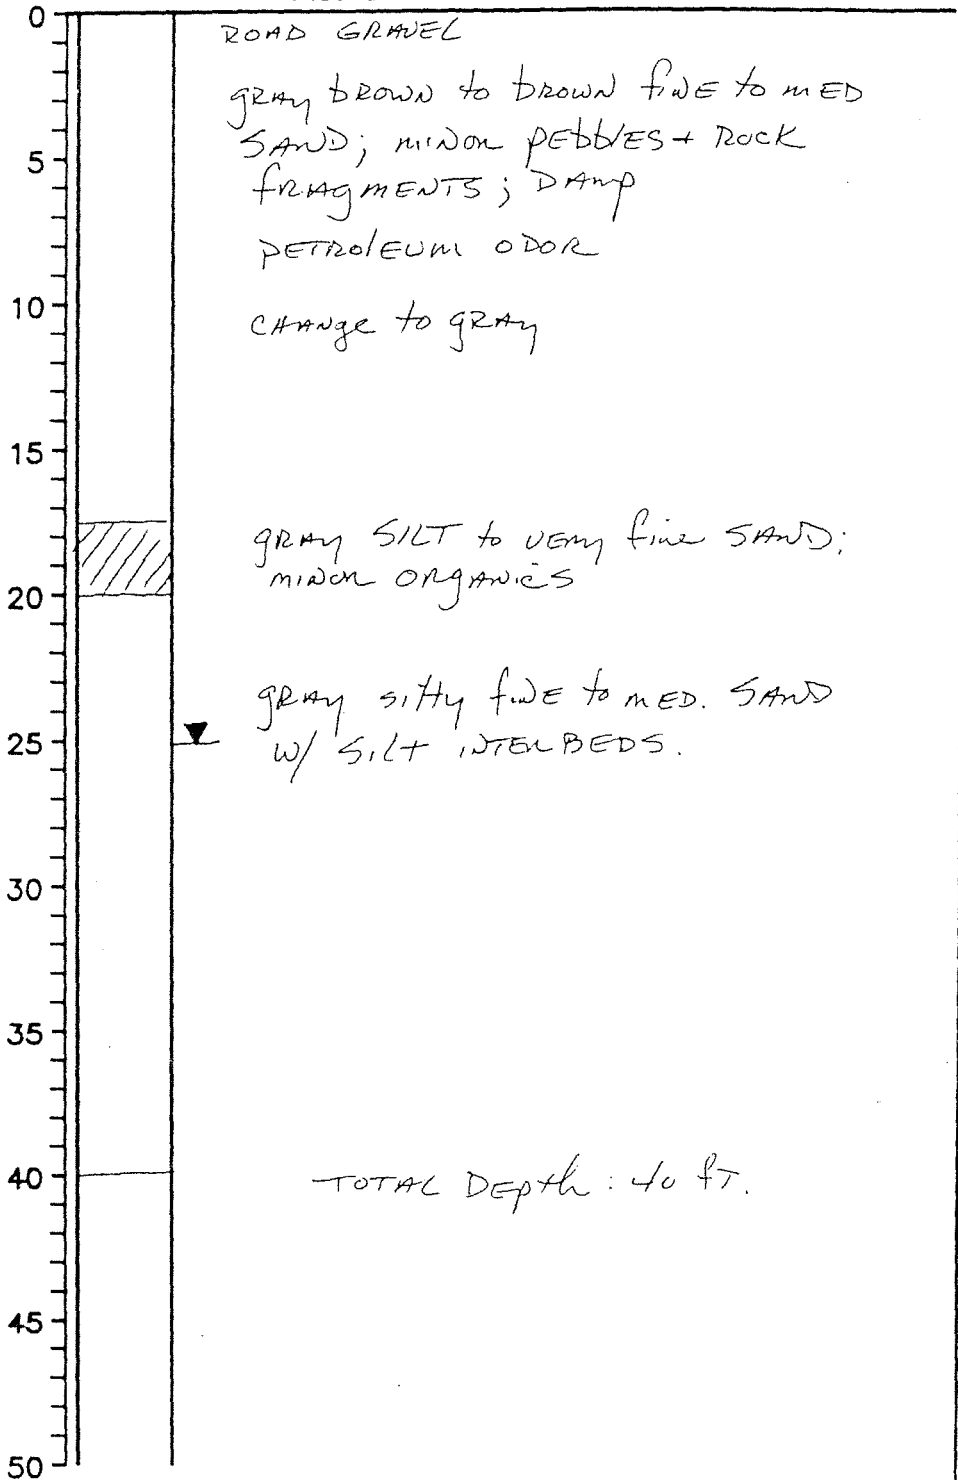 0
ROAD GRAVEL
gRAy bROWN to bROWN fiNE to mED
SAND; miNOR pEbblES + ROCK
fRAgmENTS; DAmp
5
pETROlEUm ODOR
10
CHANge to gRAy
15
gRAy SILT to VERy fine SAND;
miNOR ORgANiCS
20
gRAy silty fiNE to mED. SAND
W/ SiLt iNTERBEDS.
25
30
35
40
TOTAL DEpth: 40 fT.
45
50